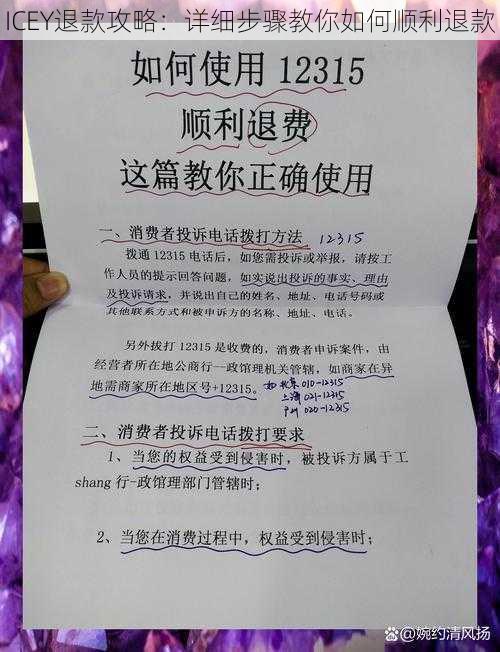 ICEY退款攻略：详细步骤教你如何顺利退款
如何使用 12315
顺利退费
这篇教你正确使用
一、消费者投诉电话拨打方法 12315
拨通 12315 电话后，如您需投诉或举报，请按工
作人员的提示回答问题，如实说出投诉的事实、理由
及投诉请求，并说出自己的姓名、地址、电话号码或
其他联系方式和被申诉方的名称、地址、电话。
另外拨打 12315 是收费的，消费者申诉案件，由
经营者所在地公商行一政馆理机关管辖，如商家在异
地需商家所在地区号+12315。如 北京 010-12315
上海 021-12315
广州 020-12315
二、消费者投诉电话拨打要求
1、当您的权益受到侵害时，被投诉方属于工
shang 行-政馆理部门管辖时；
2、当您在消费过程中，权益受到侵害时；
婉约清风扬